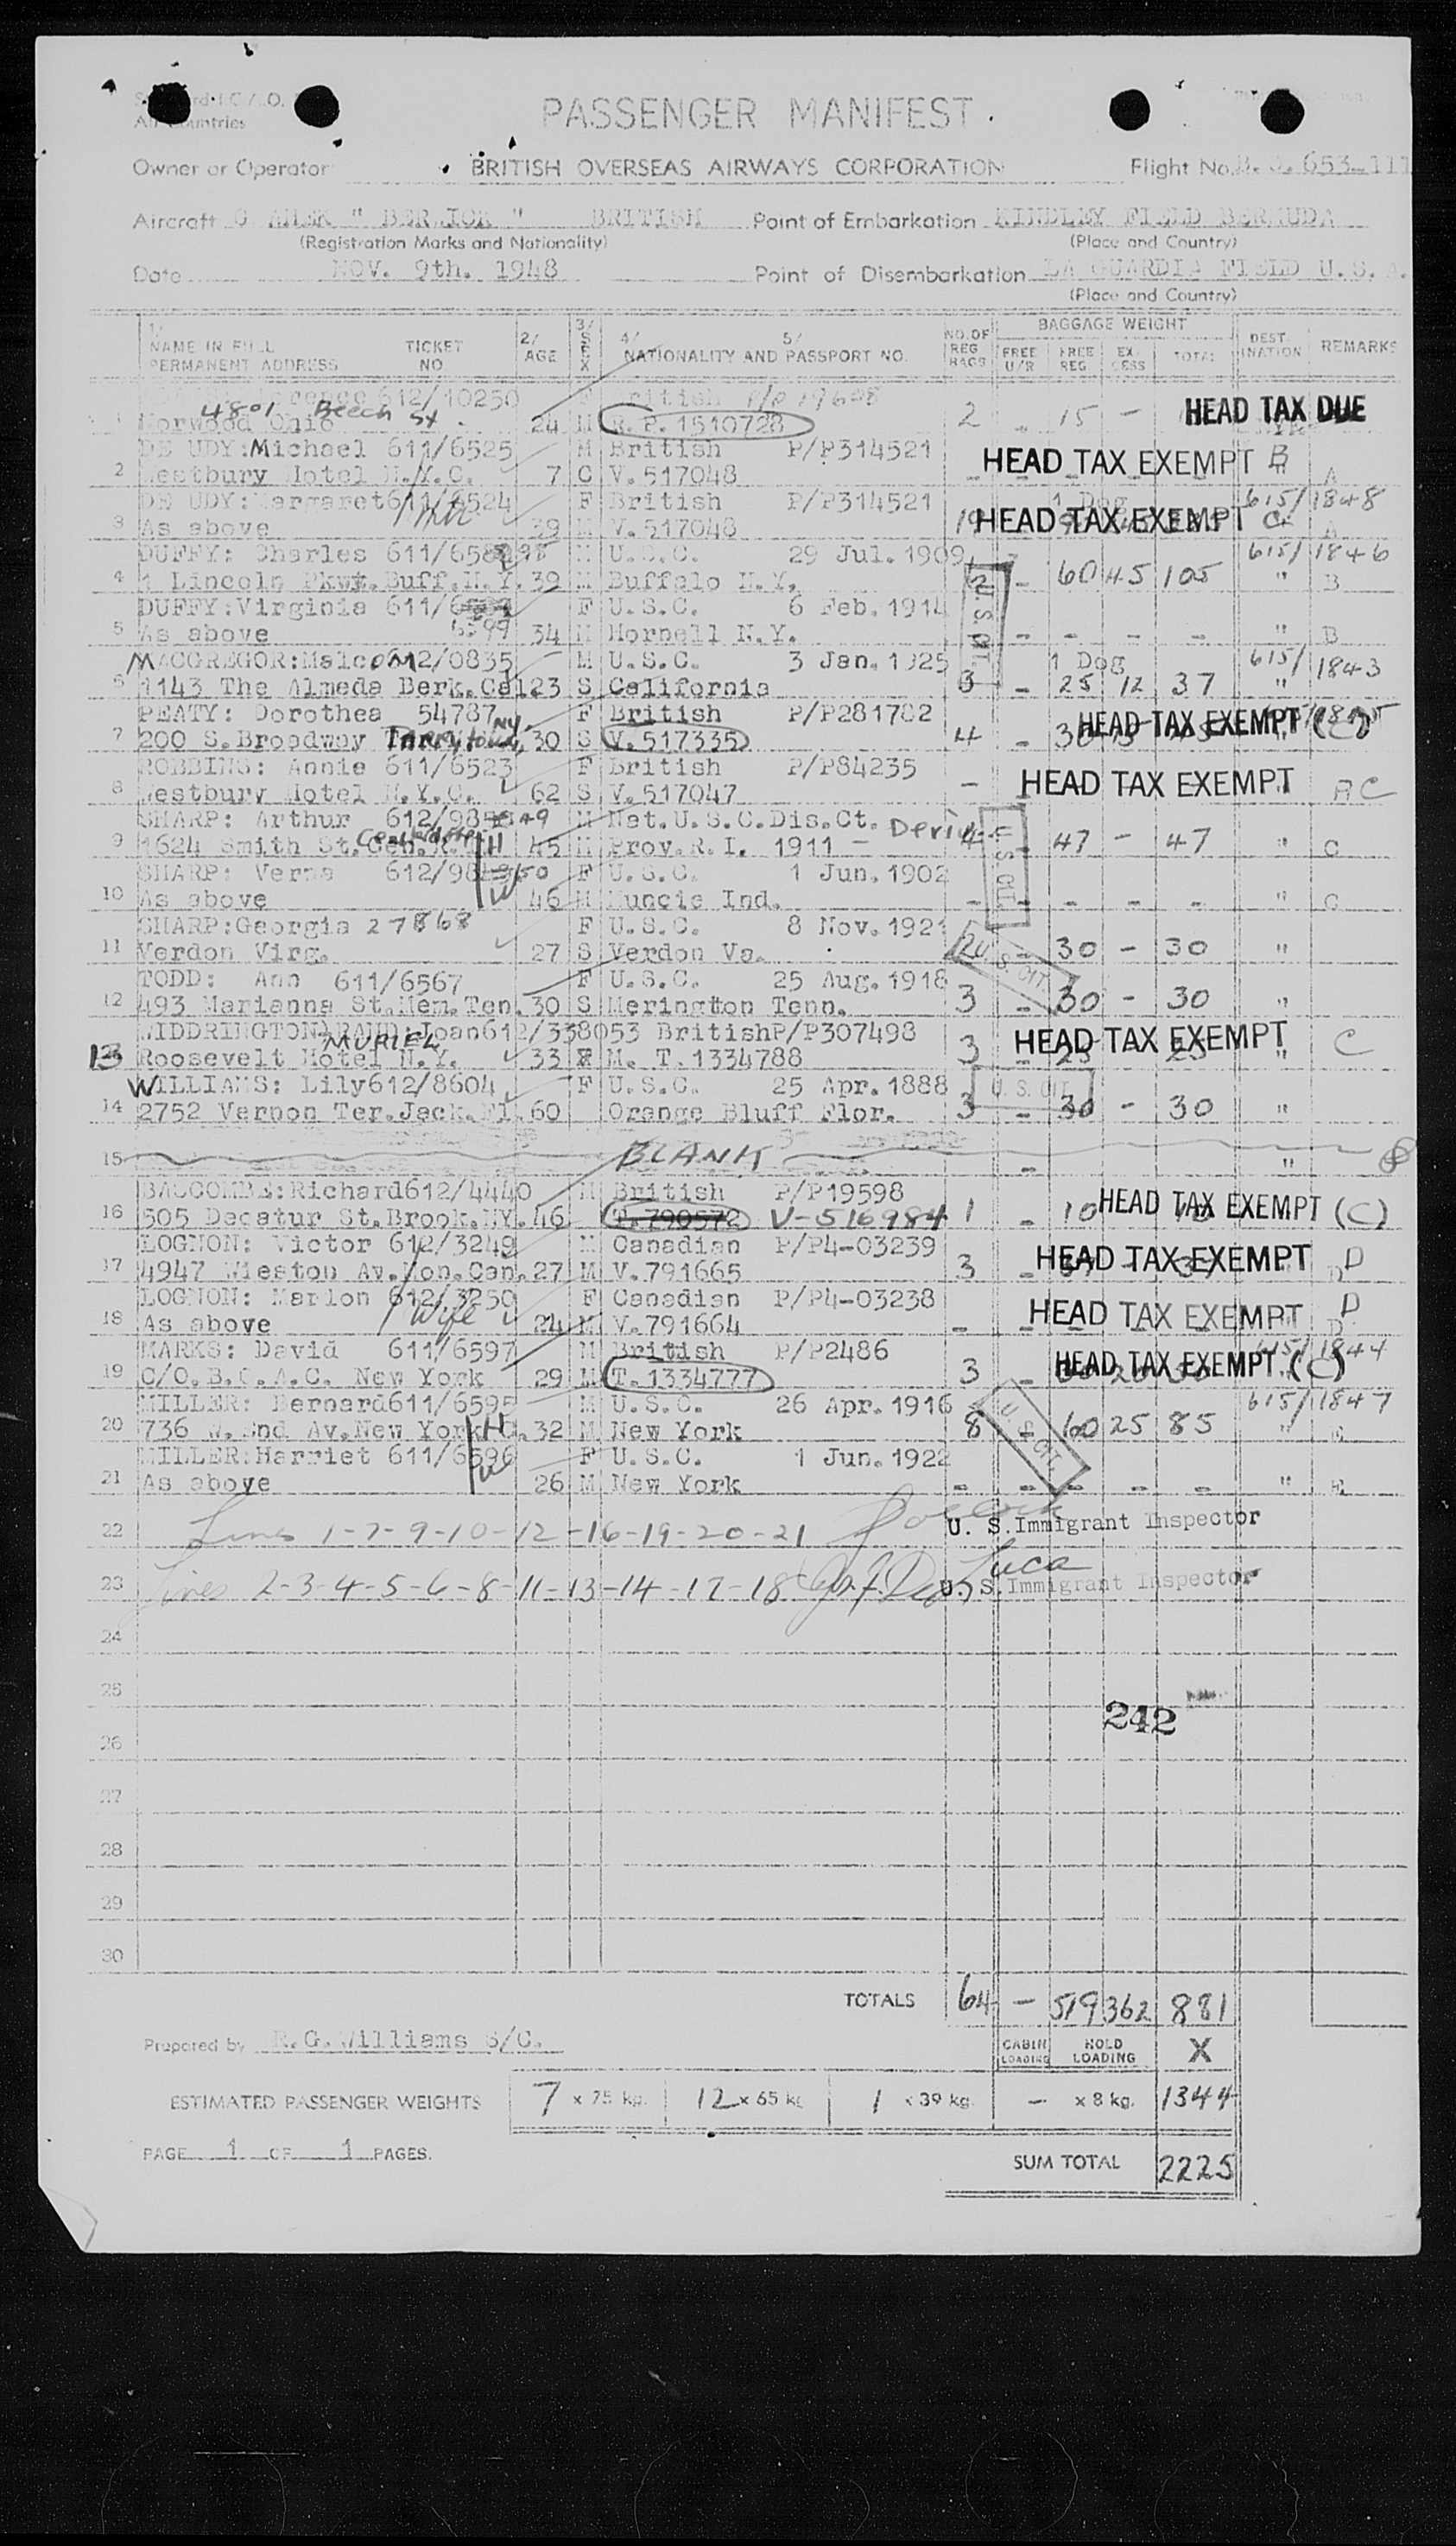 PASSENGER MANIFEST.
Owner or Operator BRITISH OVERSEAS AIRWAYS CORPORATION Flight No. 653-111
Aircraft BRITISH Point of Embarkation KINDLEY FIELD BERMUDA
(Registration Marks and Nationality) (Place and Country)
Date NOV. 9th. 1948 Point of Disembarkation LA GUARDIA FIELD U.S.A.
(Place and Country)
1/ NAME IN FULL PERMANENT ADDRESS TICKET NO 2/ AGE 3/ SEX 4/ 5/ NATIONALITY AND PASSPORT NO. NO.OF REG BAGS BAGGAGE WEIGHT FREE U/R FREE REG. EX-CESS TOTAL DEST-INATION REMARKS
612/10250 F British
4801 Beech St.
1 Norwood Ohio 24 M R.P.1510728 2 15 - HEAD TAX DUE
DE UDY:Michael 611/6525 M British P/P314521
2 Westbury Hotel N.Y.C. 7 C V.517048 HEAD TAX EXEMPT B A
DE UDY:Margaret 611/6524 F British P/P314521 1 Dog 615/1848
3 As above 39 M V.517048 19 HEAD TAX EXEMPT C A
DUFFY: Charles M U.S.C. 29 Jul.1909 615/1846
4 1 Lincoln Pkwt.Buff.N.Y. 39 M Buffalo N.Y. U.S. CIT. - 60 45 105 " B
DUFFY:Virginia 611/ F U.S.C. 6 Feb.1914
5 As above 6599 34 M Hornell N.Y. - - - - " B
MACGREGOR:Malcom 612/0835 M U.S.C. 3 Jan.1925 1 Dog 615/1843
6 1143 The Almeda Berk.Cal 23 S California 3 - 25 12 37 "
PEATY: Dorothea 54787 F British P/P281782
7 200 S.Broadway Tarrytown, NY 30 S V.517335 4 - HEAD TAX EXEMPT (C)
ROBBINS: Annie 611/6523 F British P/P84235
8 Westbury Hotel N.Y.C. 62 S V.517047 - HEAD TAX EXEMPT AC
SHARP: Arthur M Nat.U.S.C.Dis.Ct.
9 1624 Smith St. H 45 M Prov.R.I. 1911 - 4 U.S. CIT. 47 - 47 " C
SHARP: Verna F U.S.C. 1 Jun.1902
10 As above W 46 M Muncie Ind. - - - - - " C
SHARP:Georgia 27868 F U.S.C. 8 Nov.1921
11 Verdon Virg. 27 S Verdon Va. 2 U.S. CIT. 30 - 30 "
TODD: Ann 611/6567 F U.S.C. 25 Aug.1918
12 493 Marianna St.Mem.Ten. 30 S Merington Tenn. 3 - 30 - 30 "
MURIEL
13 Roosevelt Hotel N.Y. 33 M. T.1334788 3 HEAD TAX EXEMPT C
WILLIAMS: Lily 612/8604 F U.S.C. 25 Apr.1888 U.S. CIT.
14 2752 Vernon Ter.Jack.Fl. 60 Orange Bluff Flor. 3 - 30 - 30 "
15 BLANK - "
BASCOMBE:Richard 612/4440 M British P/P19598
16 505 Decatur St.Brook.NY. 46 T.790572 V-516984 1 - 10 HEAD TAX EXEMPT (C)
LOGNON: Victor 612/3249 M Canadian P/P4-03239
17 4947 Wieston Av.Mon.Can. 27 M V.791665 3 - HEAD TAX EXEMPT D
LOGNON: Marion 612/3250 F Canadian P/P4-03238
18 As above Wife 24 M V.791664 - HEAD TAX EXEMPT D
MARKS: David 611/6597 M British P/P2486 615/1844
19 C/O.B.O.A.C. New York 29 M T.1334777 3 - HEAD TAX EXEMPT (C)
MILLER: Bernard 611/6595 M U.S.C. 26 Apr.1916 615/1847
20 736 W.End Av.New York H 32 M New York 8 U.S. CIT. 60 25 85 " E
MILLER:Harriet 611/6596 F U.S.C. 1 Jun.1922
21 As above W 26 M New York - - - - - " E
22 Lines 1-7-9-10-12-16-19-20-21 U. S. Immigrant Inspector
23 Lines 2-3-4-5-6-8-11-13-14-17-18 De Luca U. S. Immigrant Inspector
24
25
26 242
27
28
29
30
TOTALS 64 - 519 362 881
Prepared by R.G.Williams S/C. CABIN LOADING HOLD LOADING X
ESTIMATED PASSENGER WEIGHTS 7 x 75 kg. 12 x 65 kg 1 x 39 kg. - x 8 kg. 1344
PAGE 1 OF 1 PAGES. SUM TOTAL 2225